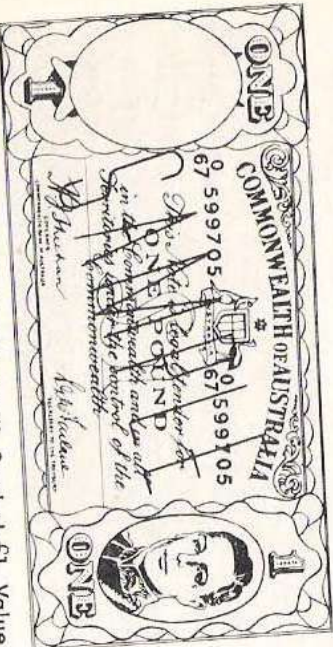 ONE
1
COMMONWEALTH OF AUSTRALIA
0
67 599705
0
67 599705
This Note is Legal Tender for
ONE POUND
in the Commonwealth and in all
Territories under the control of the
Commonwealth
1
ONE
£1 Value